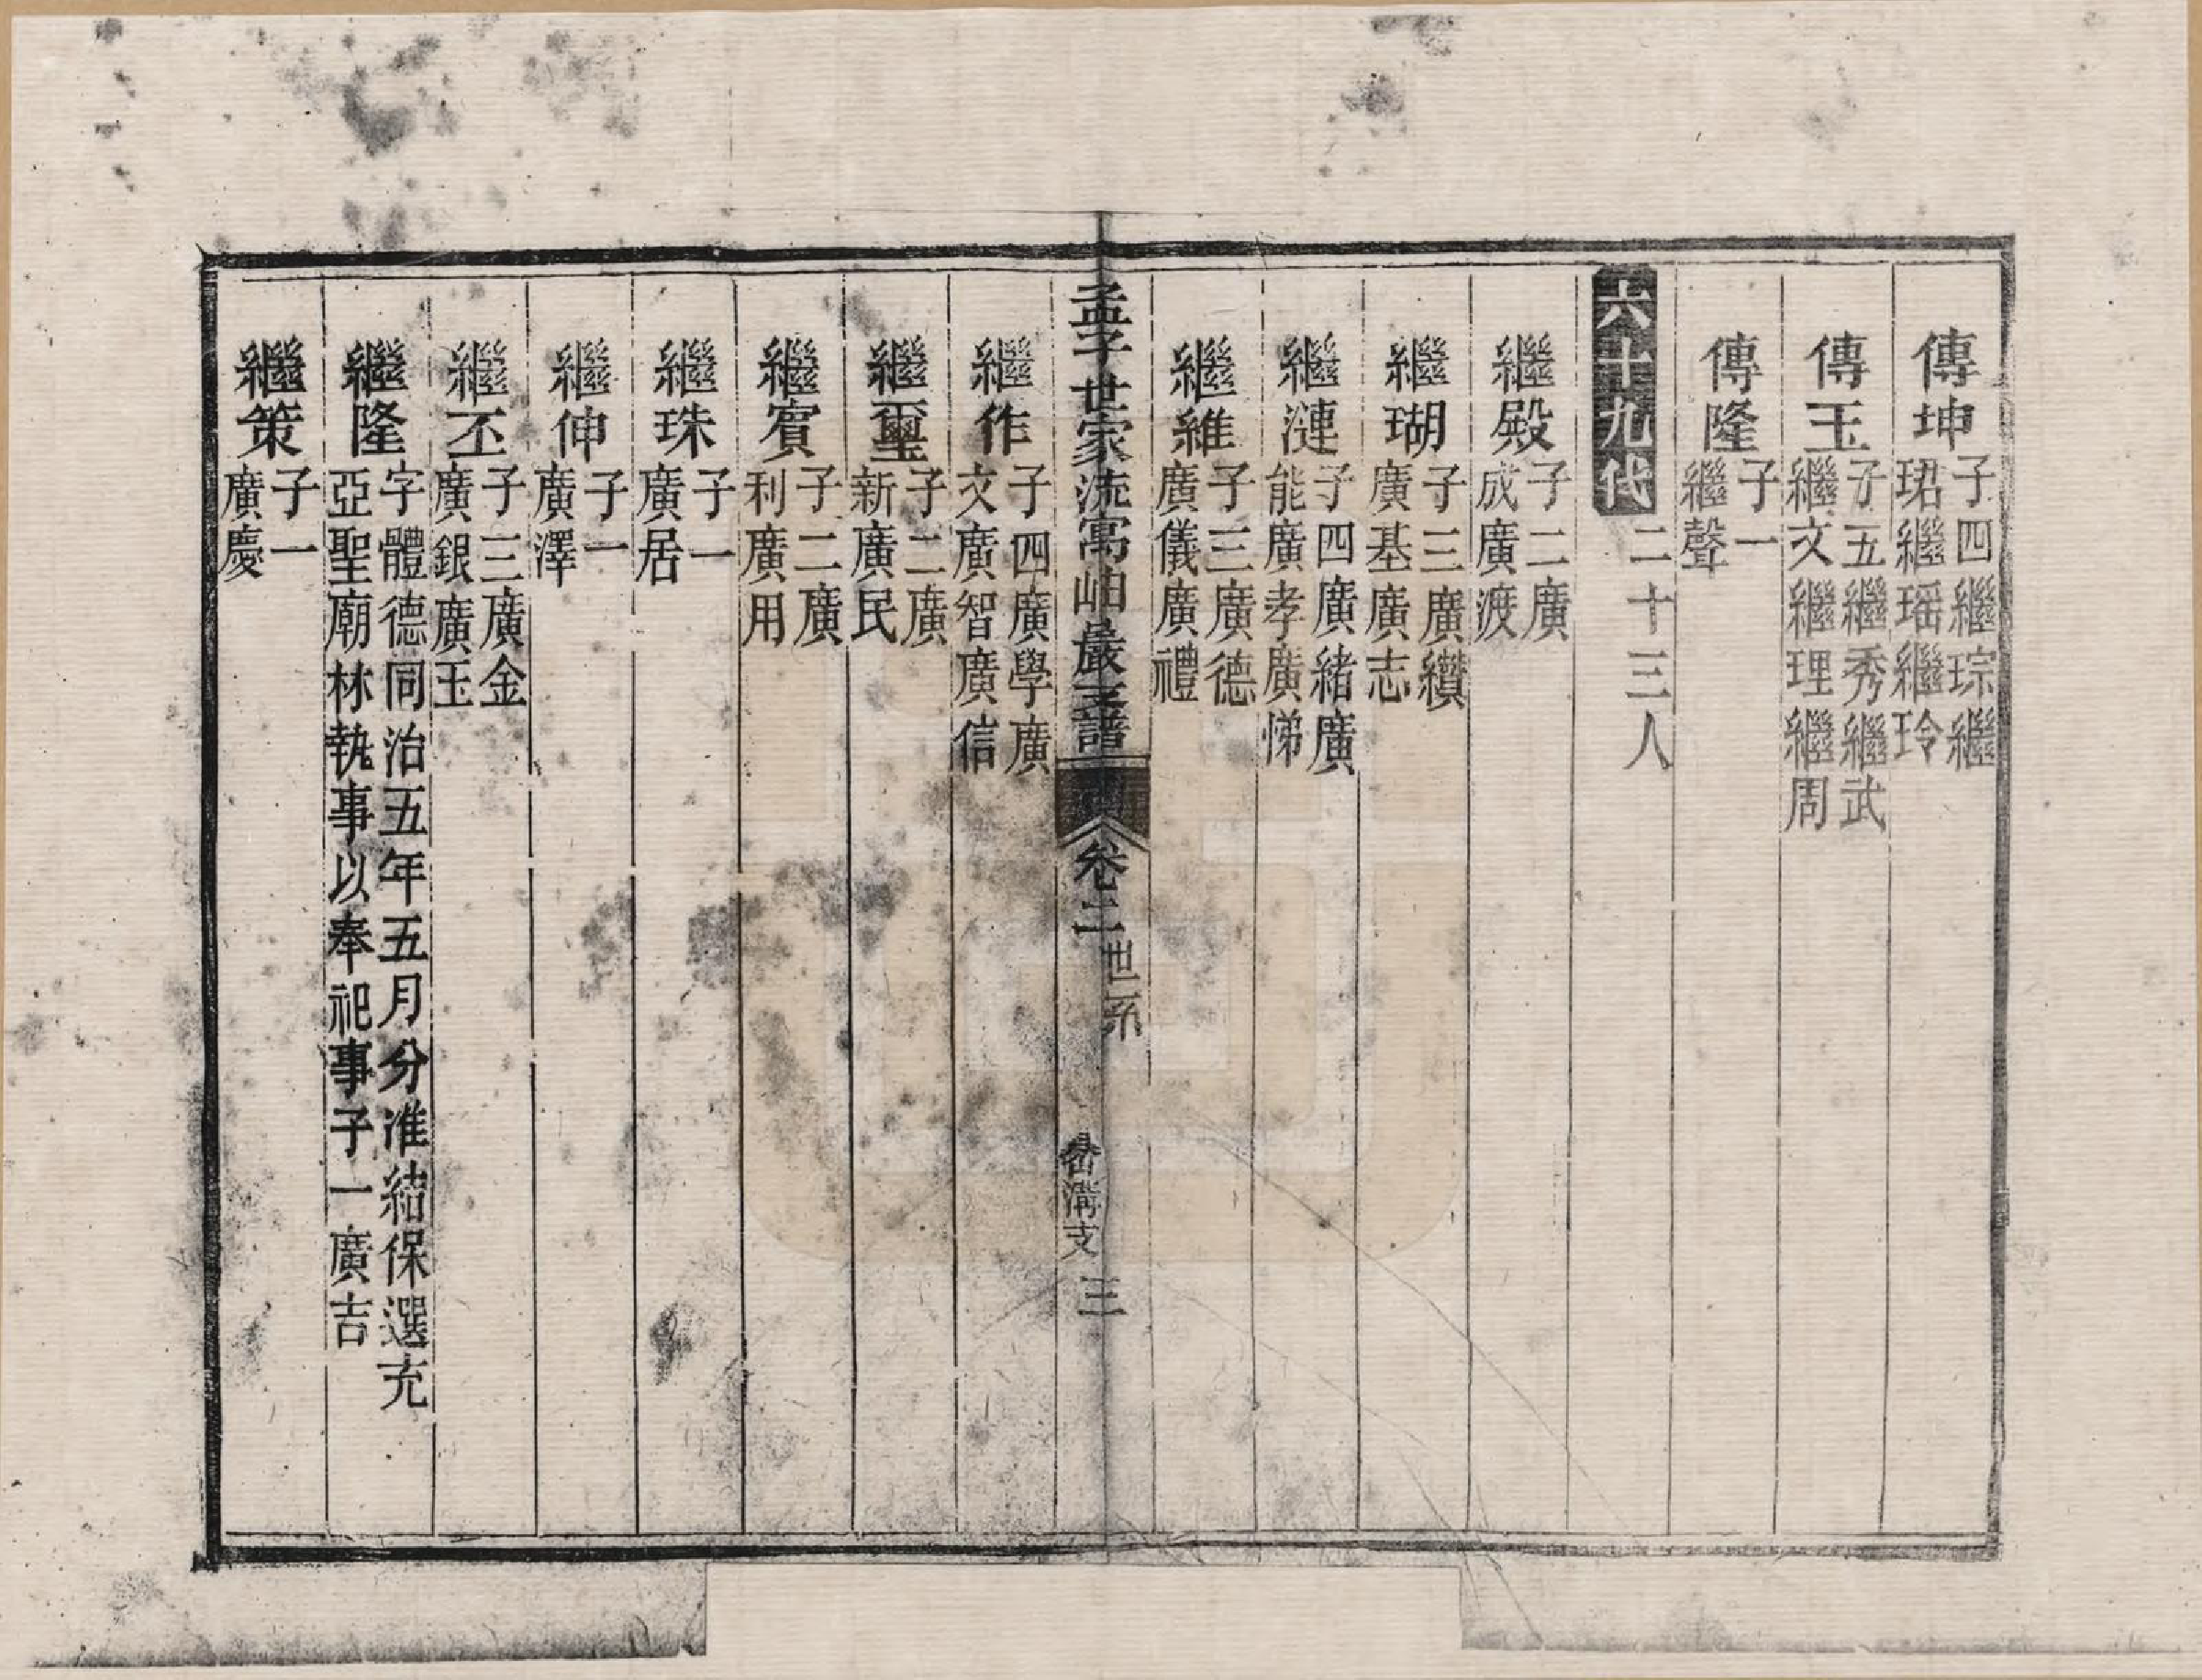 傳坤 子四繼琮繼珺繼瑶繼玲
傳玉 子五繼秀繼武繼文繼理繼周
傳隆 子一繼聲
六十九代 二十三人
繼殿 子二廣成廣渡
繼瑚 子三廣纘廣基廣志
繼漣 子四廣緒廣能廣孝廣悌
繼維 子三廣德廣儀廣禮
孟子世家流寓岫巖支譜 卷二 世系 溝支 三
繼作 子四廣學廣文廣智廣信
繼璽 子二廣新廣民
繼賓 子二廣利廣用
繼珠 子一廣居
繼伸 子一廣澤
繼丕 子三廣金廣銀廣玉
繼隆 字體德同治五年五月分准結保選充亞聖廟林執事以奉祀事子一廣吉
繼策 子一廣慶